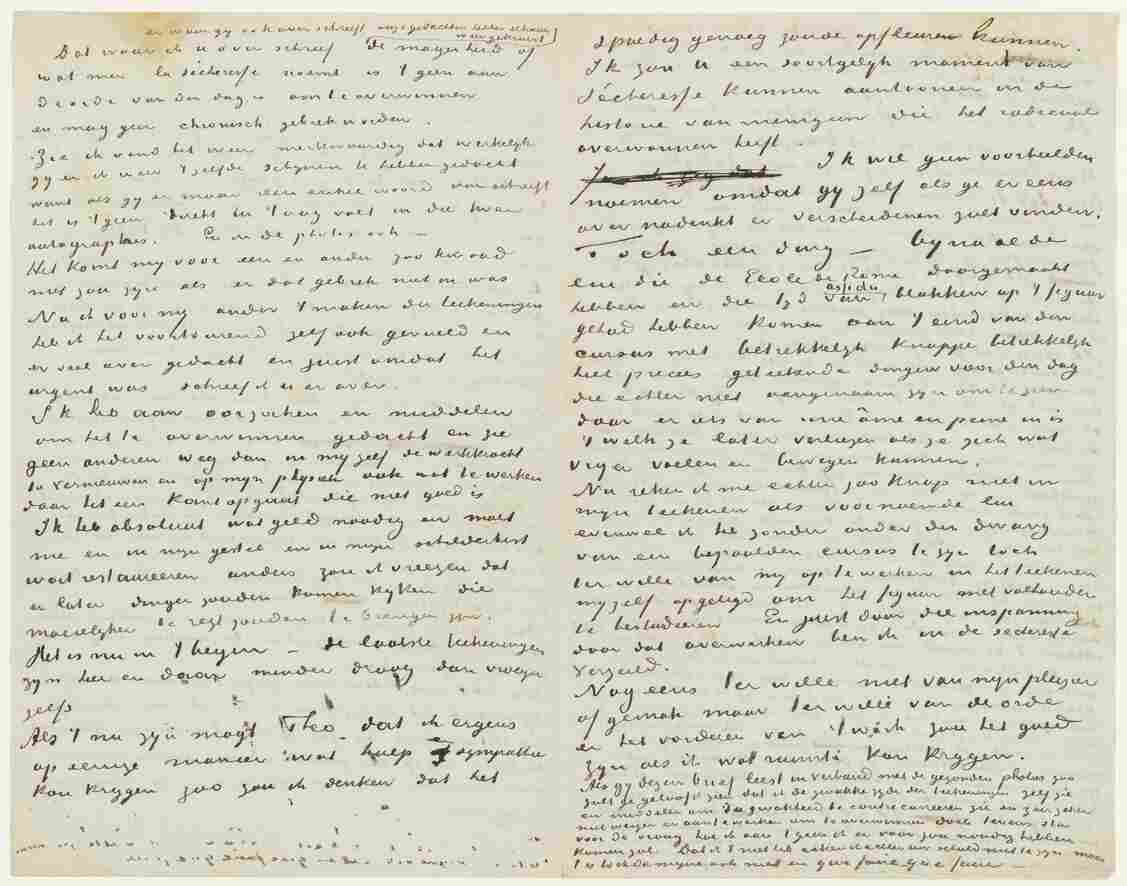 er waar gy ook over schreef onze gedachten
Dat waar ik u over schreef de magerheid of
wat men la sécheresse noemt is 't geen aan
de orde van den dag is om te overwinnen
en mag geen chronisch gebrek worden.
Zie ik vond het weer merkwaardig dat werkelyk
gy en ik weer 't zelfde schynen te hebben gedacht
want als gy er maar een enkel woord van schreeft
het is 't geen direkt in 't oog valt in die twee
autographies. En in de photos ook —
Het komt my voor een en ander zoo kwaad
niet zou zyn als er dat gebrek niet in was
Nu ik voor my onder 't maken der teekeningen
heb ik het voortdurend zelf ook gevoeld en
er veel over gedacht en juist omdat het
urgent was schreef ik u er over.
Ik heb aan oorzaken en middelen
om het te overwinnen gedacht en zie
geen anderen weg dan in my zelf de werkkracht
te vernieuwen en op myn physiek ook wat te werken
daar het een komt op gaat die niet goed is
Ik heb absoluut wat geld noodig en moet
me en in myn gestel en in myn schilderkist
wat restaureeren anders zou ik vreezen dat
er later dingen zouden komen kyken die
moeielyker te regt zouden te brengen zyn.
Het is nu in 't begin — de laatste teekeningen
zyn hier en daar minder droog dan vroeger
zelfs
Als 't nu zyn mogt Theo dat ik ergens
op eenige manier wat hulp & sympathie
kon krygen zoo zou ik denken dat het
spoedig genoeg zoude opfleuren kunnen.
Ik zou u een soortgelyk moment van
sécheresse kunnen aantoonen in de
historie van menigeen die het radicaal
overwonnen heeft.
Ik wil geen voorbeelden
noemen omdat gy zelf als ge er eens
over nadenkt er verscheidenen zult vinden.
Toch een ding — byna al de
lui die de Ecole de Rome doorgemaakt
hebben en die tyd van assidu blokken op 't figuur
gehad hebben komen aan 't eind van den
cursus met betrekkelyk knappe betrekkelyk
heel precies geteekende dingen voor den dag
die echter niet aangenaam zyn om te zien
daar er iets van une âme en peine in is
't welk ze later verliezen als ze zich wat
vryer voelen en bewegen kunnen.
Nu reken ik me echter zoo knap niet in
myn teekenen als voornoemde lui
evenwel ik heb zonder onder den dwang
van een bepaalden cursus te zyn toch
ter wille van my op te werken in het teekenen
myzelf opgelegd om het figuur met volharding
te bestudeeren En juist door die inspanning
door dat overwerken ben ik in de sécheresse
verzeild.
Nog eens ter wille niet van myn pleizier
of gemak maar ter wille van de orde
en het vorderen van 't werk zou het goed
zyn als ik wat ruimte kon krygen.
Als gy dezen brief leest in verband met de gezonden photos zoo
zult ge geloof ik zien dat ik de zwakke zyde der teekeningen zelf zie
en middelen om die zwakheid te contrecarreeren zie en zeer zeker
niet weiger er aan te werken om te overwinnen doch tevens sta
voor de vraag hoe ik aan 't geen ik er voor zou noodig hebben
komen zal. Dat ik 't niet heb